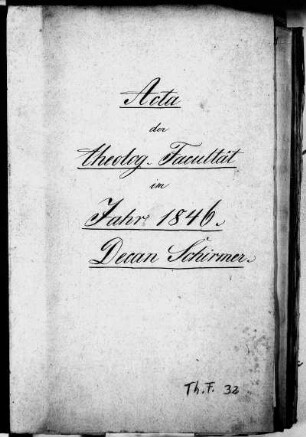 Acta
der
theolog. Facultät
im
Jahr 1846.
Decan Schirmer.
Th. F. 32